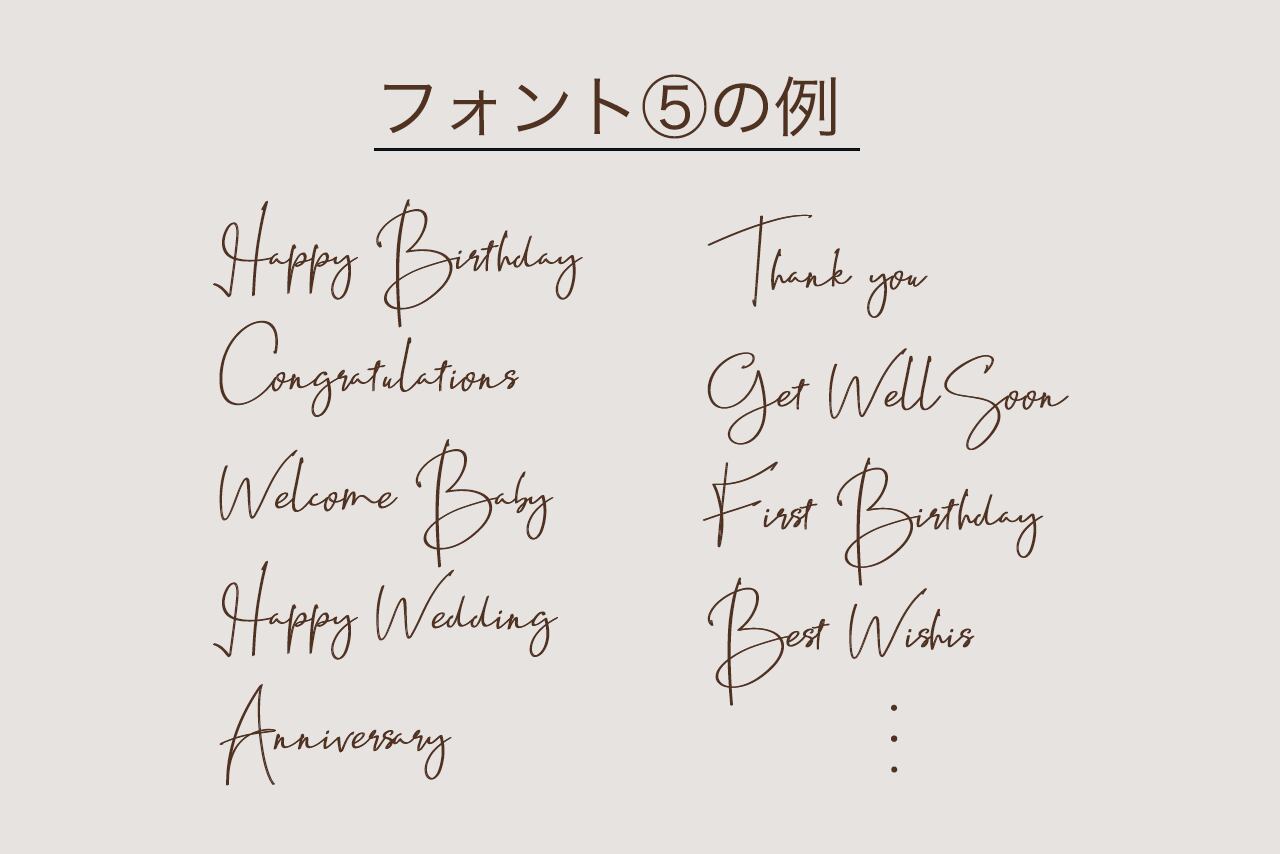 フォント⑤の例
Happy Birthday
Congratulations
Welcome Baby
Happy Wedding
Anniversary
Thank you
Get Well Soon
First Birthday
Best Wishis
・
・
・